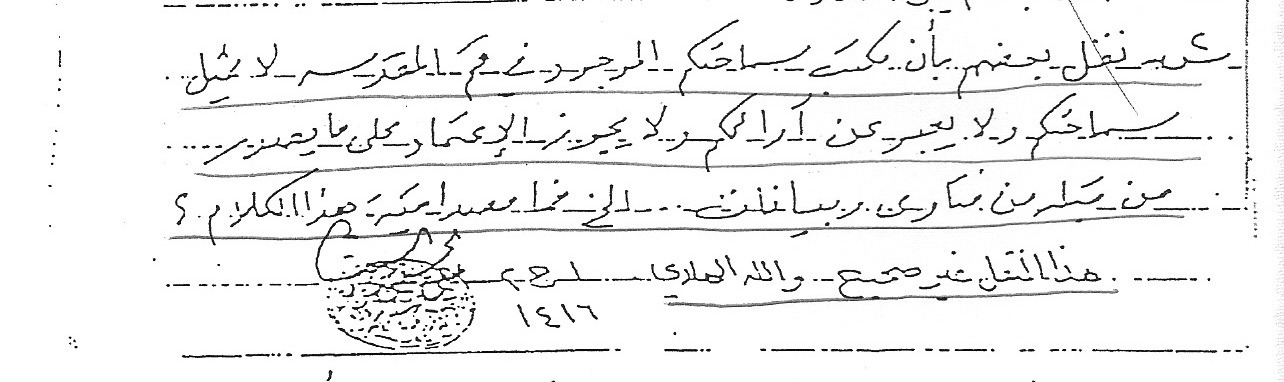 نقل بعضهم بأن مكتب سماحتكم الموجود في قم المقدسه لا يمثل
سماحتكم ولا يعبر عن آرائكم ولا يجوز الإعتماد على ما يصدر
من قبله من فتاوى وبيانات ... الخ فما مصداقية هذا الكلام ؟
هذا النقل غير صحيح والله الهادي
١٤١٦